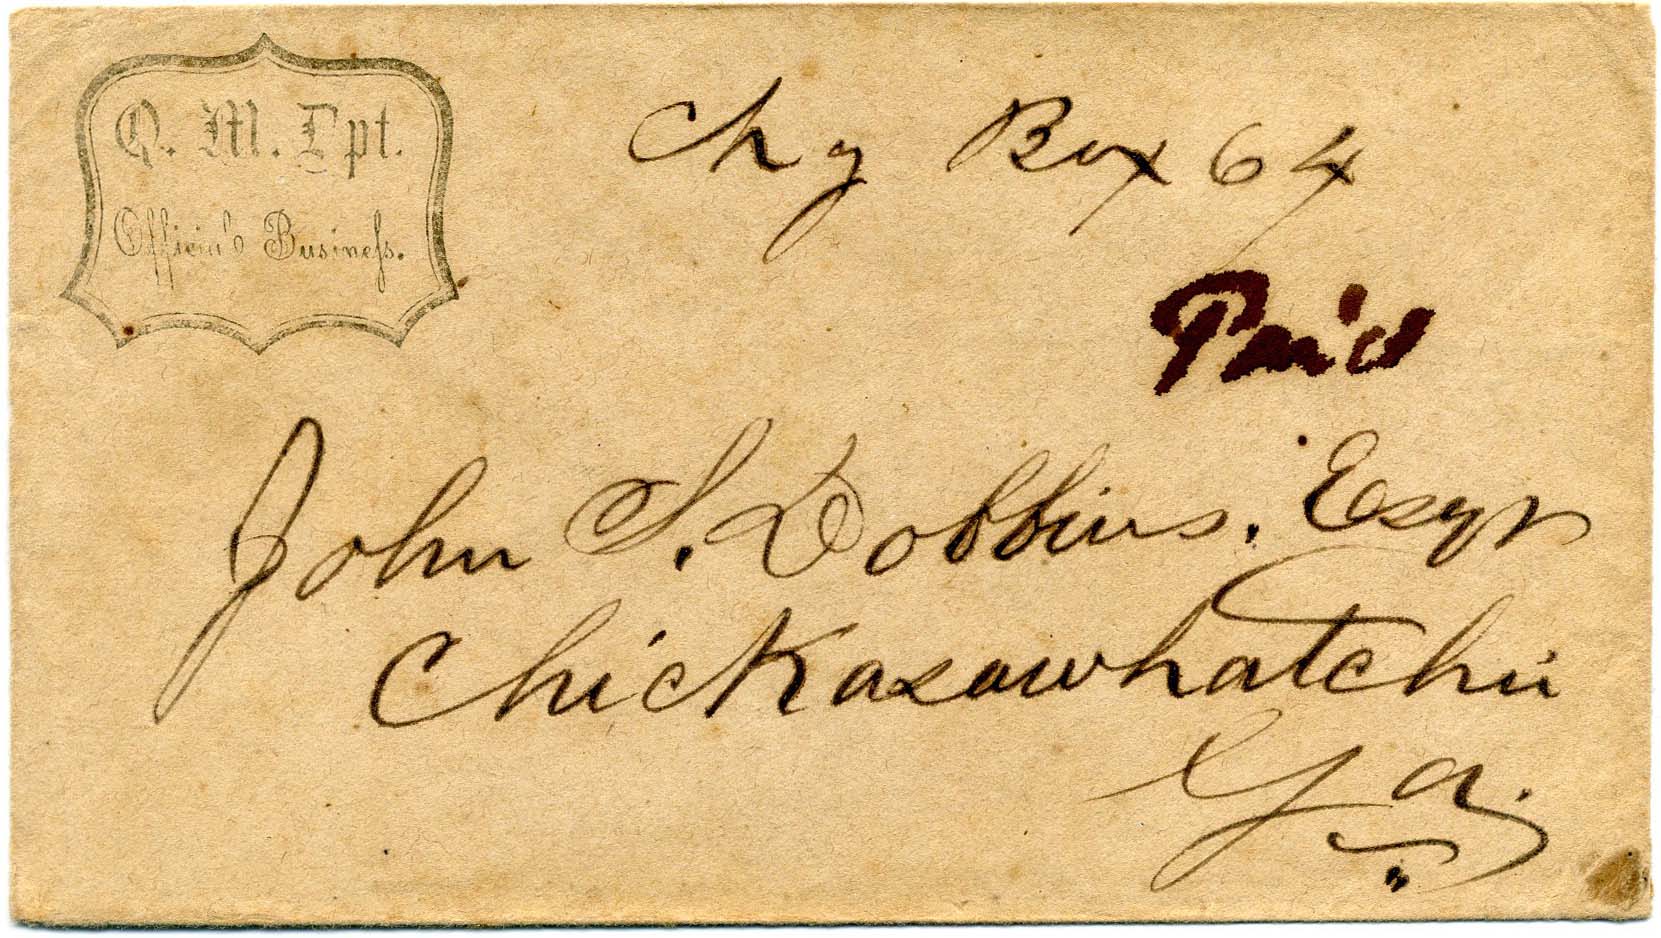 Q. M. Dpt.
Officia's Business.
Chg Box 64
Paid
John S. Dobbins. Esqr
Chickasawhatchii
Ga.